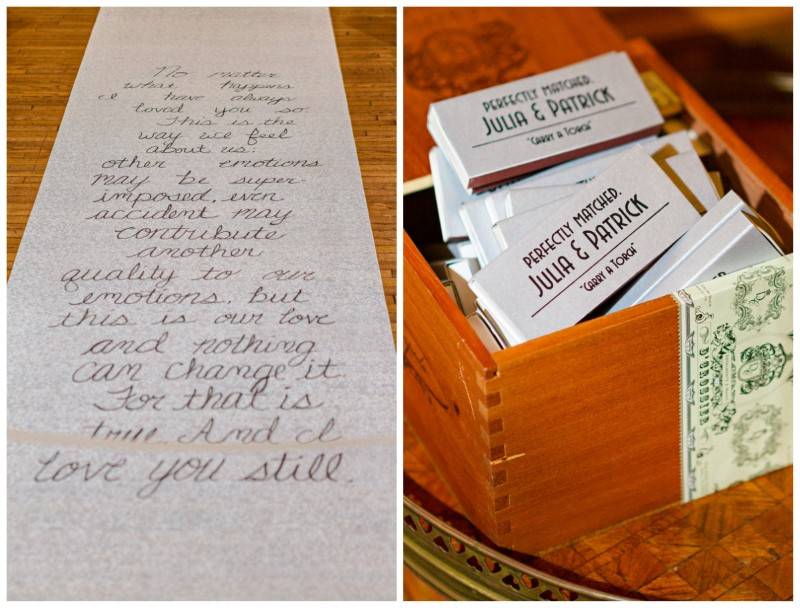 No matter
what happens
I have always
loved you so.
This is the
way we feel
about us:
other emotions
may be super-
imposed, even
accident may
contribute
another
quality to our
emotions, but
this is our love
and nothing
can change it.
For that is
true. And I
love you still.
PERFECTLY MATCHED.
JULIA & PATRICK
"CARRY A TORCH"
PERFECTLY MATCHED.
JULIA & PATRICK
"CARRY A TORCH"